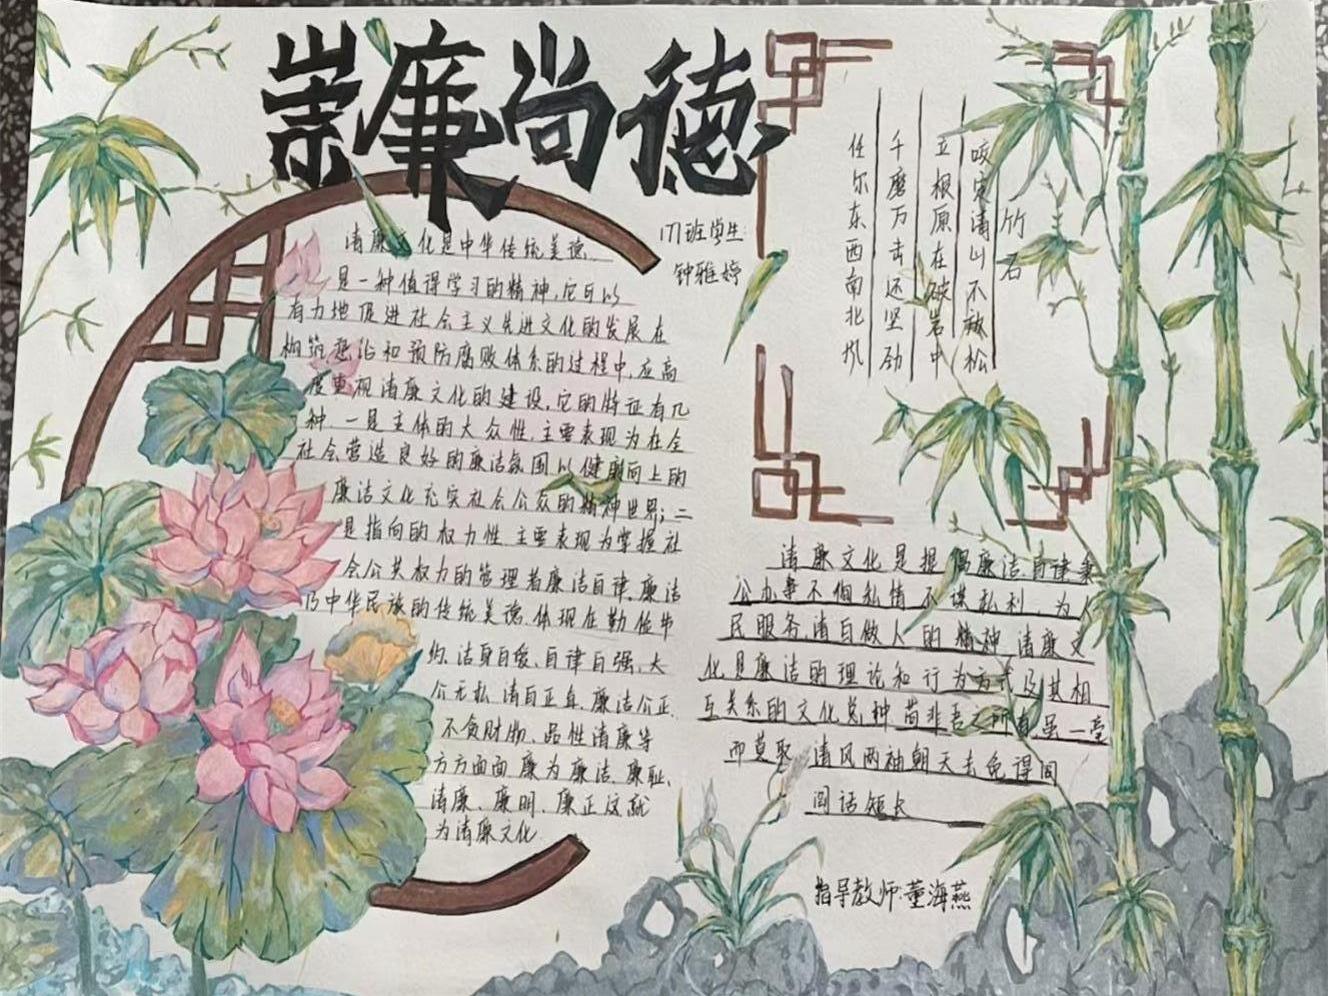 崇廉尚德
171班学生:
钟雅婷
清廉文化是中华传统美德、
是一种值得学习的精神,它可以
有力地促进社会主义先进文化的发展在
构筑惩治和预防腐败体系的过程中,应高
度重视清廉文化的建设,它的特征有几
种,一是主体的大众性,主要表现为在全
社会营造良好的廉洁氛围以健康向上的
廉洁文化充实社会公众的精神世界;二
是指向的权力性,主要表现为掌握社
会公共权力的管理者廉洁自律,廉洁
乃中华民族的传统美德,体现在勤俭节
约、洁身自爱、自律自强、大
公无私、清自正身、廉洁公正、
不贪财物、品性清廉等
方方面面 廉为廉洁、廉耻、
清廉、廉明、廉正这就
为清廉文化.
竹石
咬定清山不放松
立根原在破岩中
千磨万击还坚劲
任尔东西南北风
清廉文化是提倡廉洁自律秉
公办事不徇私情不谋私利、为人
民服务,清白做人的精神 清廉文
化是廉洁的理论和行为方式及其相
互关系的文化总种 苟非吾之所有虽一毫
而莫取 清风两袖朝天去免得闾
阎话短长
指导教师:董海燕